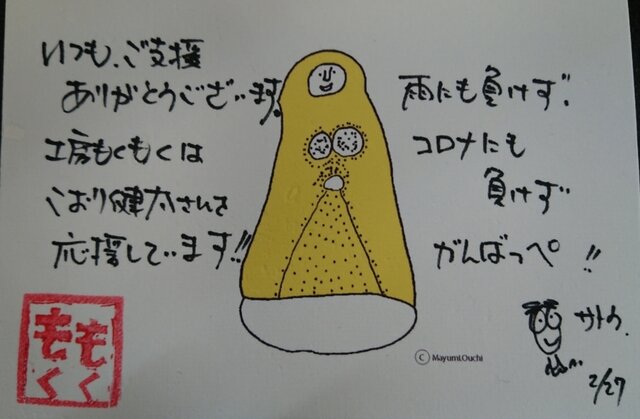 いつも、ご支援
ありがとうございます。
工房もくもくは
こおり健太さんを
応援しています!!
雨にも負けず、
コロナにも
負けず
がんばっぺ!!
サトウ
2/27
もく
もく
© MayumiOuchi